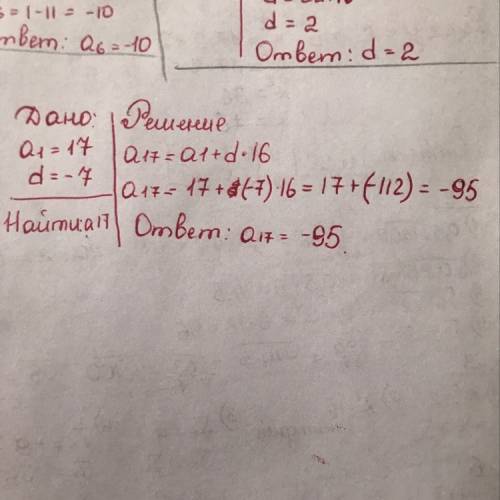 = 1-11 = -10
твет: a6=-10
d = 2
Ответ: d = 2
Дано:
a1 = 17
d = -7
Найти: a17
Решение
a17 = a1 + d · 16
a17 = 17 + (-7) · 16 = 17 + (-112) = -95
Ответ: a17 = -95.